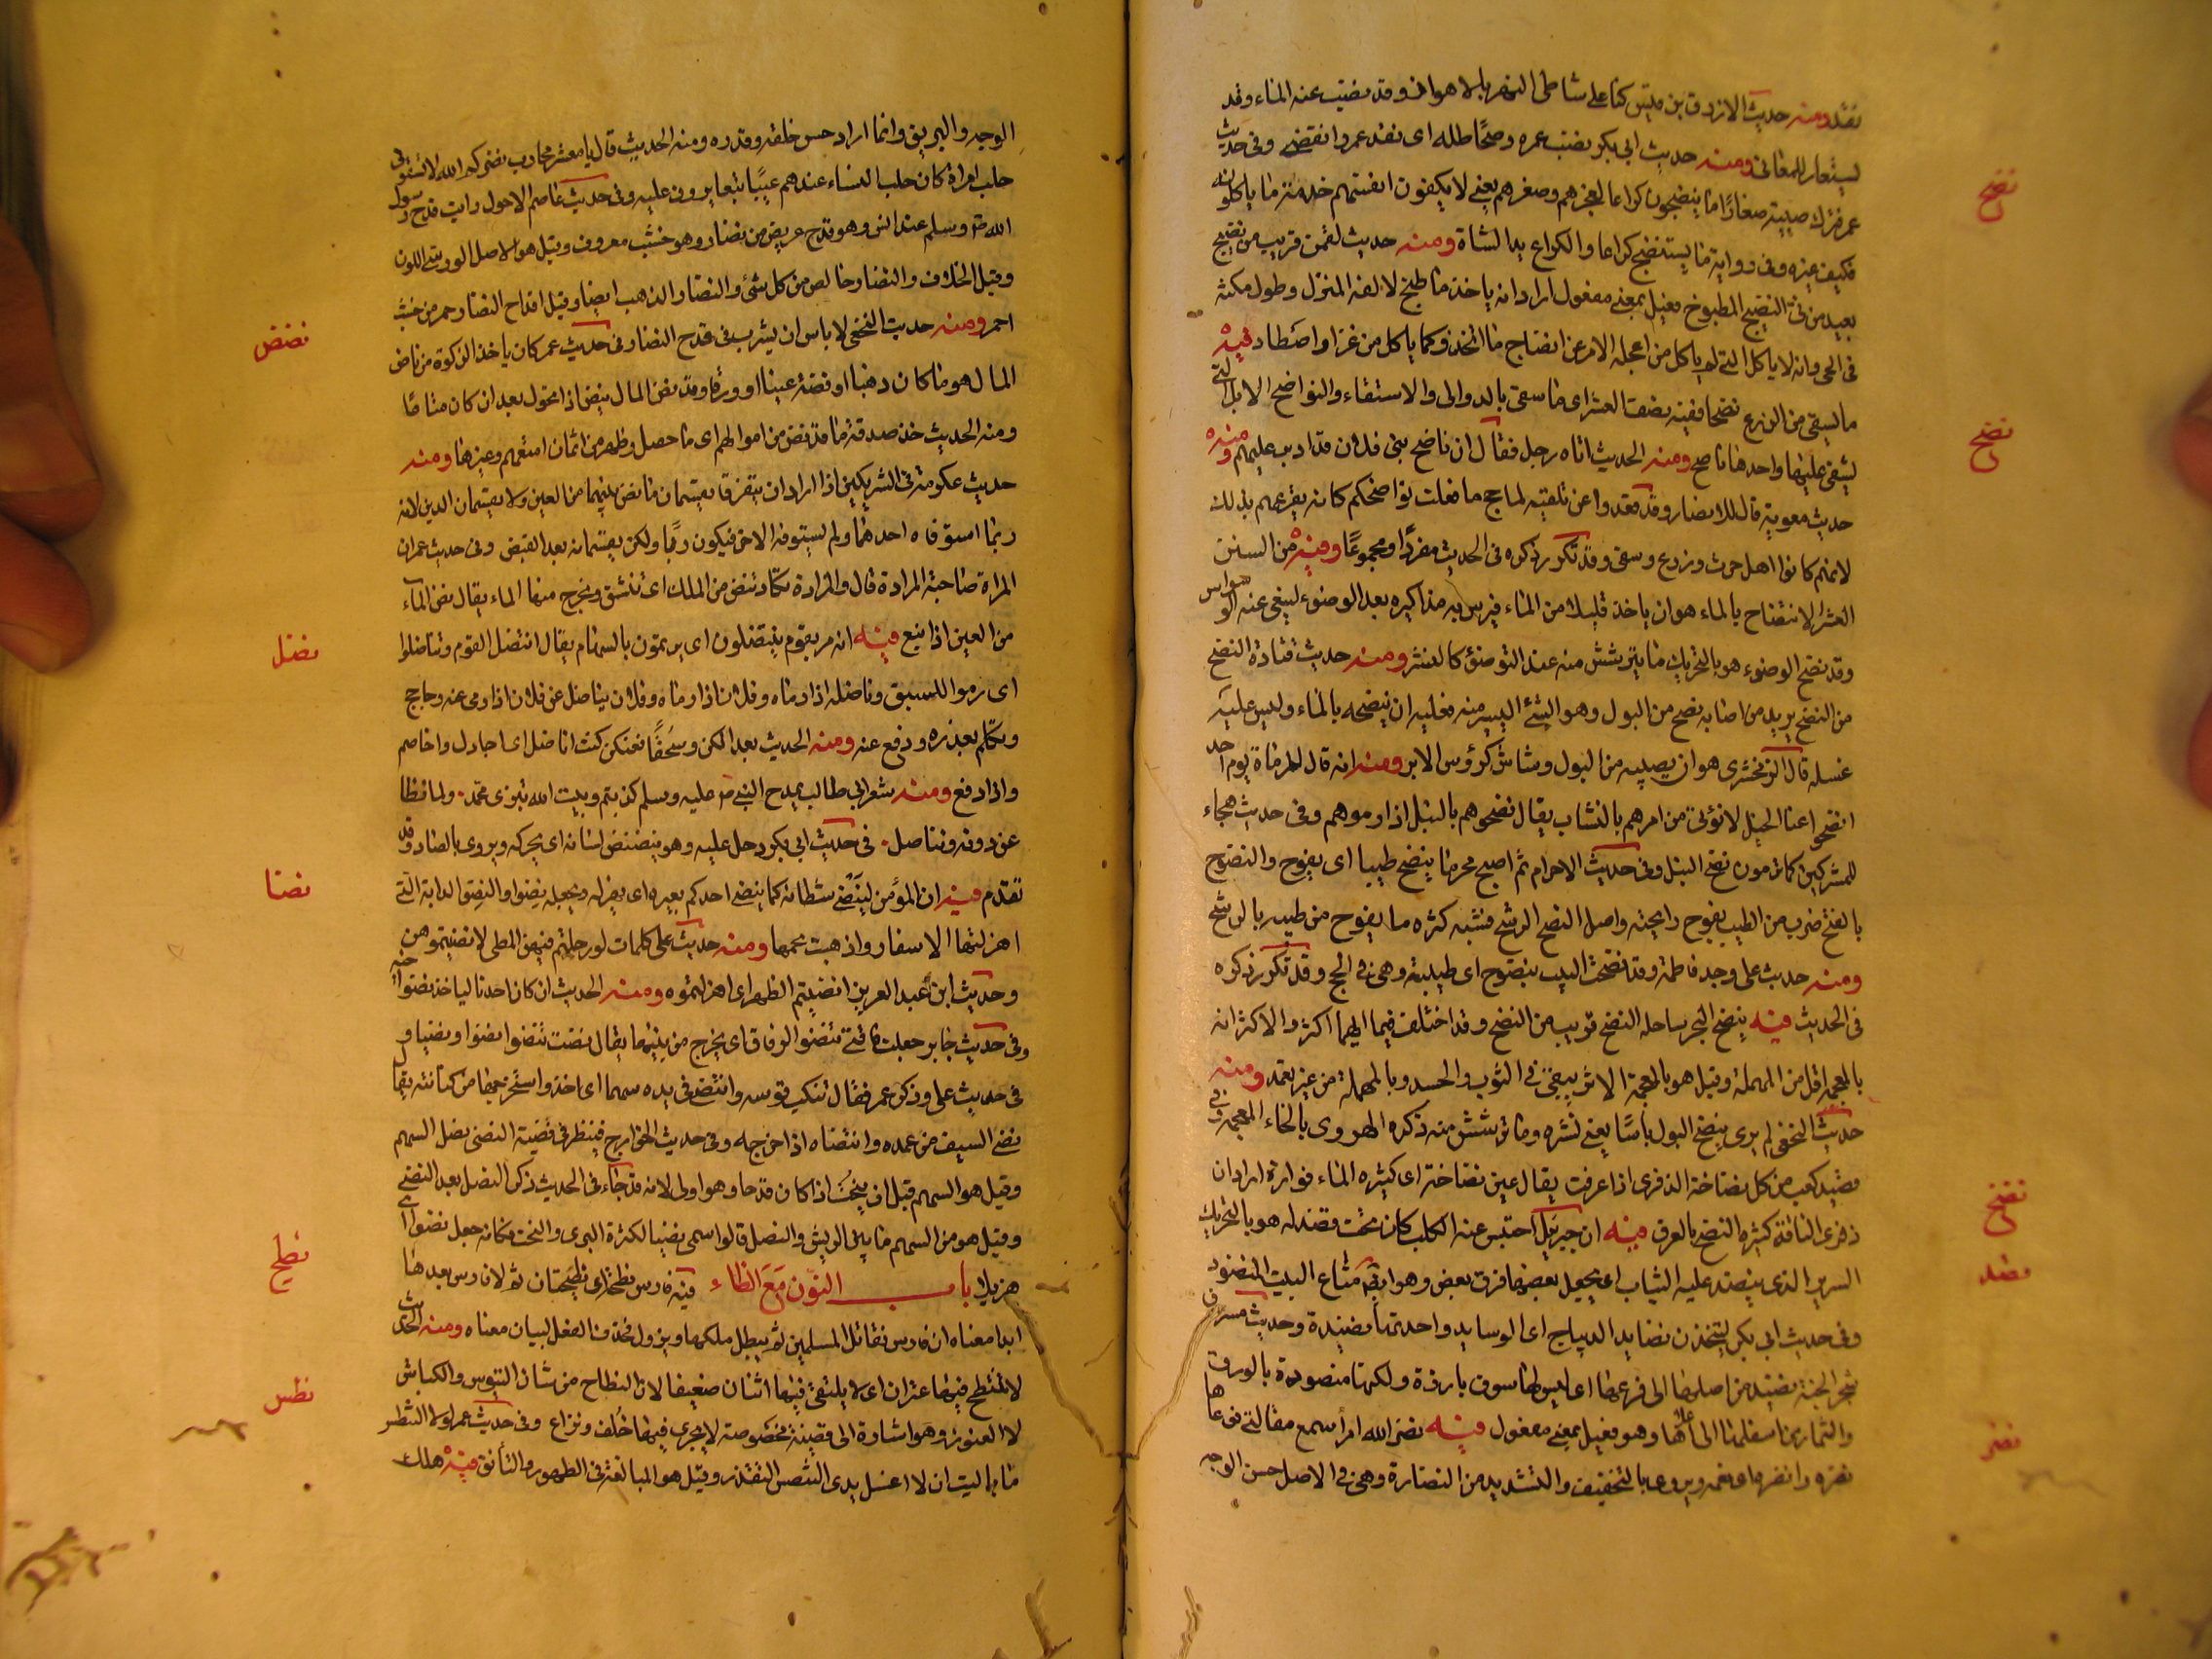 نفد ومنه حديث الازرق بن قيس كنا على شاطى النهر بالاهواز وقد نضب عنه الماء وقد
يستعار للمعانى ومنه حديث ابى بكر نضب عمره وضحا ظله اى نفد عمره وانقضى وفى حديث
نضج
عمر ترك صبية صغارا ما ينضجون كراعا لعجزهم وصغرهم يعنى لا يكفون انفسهم خدمة ما ياكلونه
فكيف غيره وفى رواية ما يستنضج كراعا والكراع يد الشاة ومنه حديث لقمن قريب من نضيج
بعيد من نئ النضيج المطبوخ فعيل بمعنى مفعول اراد انه ياخذ ما طبخ لالفه المنزل وطول مكثه
فى الحى وانه لا ياكل النئ كما ياكل من اعجله الامر عن انضاج ما اتخذ وكما ياكل من غزا واصطاد فيه
نضح
ما يسقى من الزرع نضحا ففيه نصف العشر اى ما سقى بالدوالى والاستقاء والنواضح الابل التى
يستقى عليها واحدها ناضح ومنه الحديث اتاه رجل فقال ان ناضح بنى فلان قد ابد عليهم ومنه
حديث معوية قال للانصار وقد قعدوا عن تلقيه لما حج ما فعلت نواضحكم كانه يقرعهم بذلك
لانهم كانوا اهل حرث وزرع وسقى وقد تكرر ذكره فى الحديث مفردا ومجموعا وفيه من السنن
العشر الانتضاح بالماء هو ان ياخذ قليلا من الماء فيرش به مذاكيره بعد الوضوء لينفى عنه الوسواس
وقد نضح الوضوء هو بالتحريك ما يترشش منه عند التوضؤ كالنشر ومنه حديث قتادة النضح
من النضح يريد من اصابه نضح من البول وهو الشئ اليسير منه فعليه ان ينضحه بالماء وليس عليه
غسله قال الزمخشرى هو ان يصيبه من البول رشاش كرؤس الابر ومنه انه قال للرماة يوم احد
انضحوا عنا الخيل لا نؤتى من امرهم بالنشاب يقال نضحوهم بالنبل اذا رموهم وفى حديث هجاء
المشركين كما ترمون نضح النبل وفى حديث الاحرام ثم اصبح محرما ينضح طيبا اى يفوح والنضوح
بالفتح ضرب من الطيب يفوح رايحته واصل النضح الرشح فشبه كثرة ما يفوح من طيبه بالرشح
ومنه حديث على وجد فاطمة وقد نضحت البيت بنضوح اى طيبته وهى فى الحج وقد تكرر ذكره
فى الحديث فيه ينضخ البحر ساحله النضخ قريب من النضح وقد اختلف فيهما ايهما اكثر والاكثر انه
بالمعجمة اقل من المهملة وقيل هو بالمعجمة الاثر يبقى فى الثوب والجسد وبالمهملة من غير تعمد ومنه
حديث النخعى لم يرى بنضخ البول باسا يعنى نشره وما ترشش منه ذكره الهروى بالخاء المعجمة وفى
نضخ
قصيد كعب من كل نضاخة الذفرى اذا عرقت يقال عين نضاخة اى كثيرة الماء فوارة اراد ان
ذفرى الناقة كثيرة النضخ بالعرق فيه ان جبريل احتبس عنه لكلب كان تحت نضد له هو بالتحريك
نضد
السرير الذى ينضد عليه الثياب اى يجعل بعضها فوق بعض وهو ايضا متاع البيت المنضود
وفى حديث ابى بكر لتتخذن نضايد الديباج اى الوسايد واحدتها نضيدة وحديث مسروق
شجر الجنة نضيد من اصلها الى فرعها اى ليس لها سوق بارزة ولكنها منضودة بالورق
والثمار من اسفلها الى اعلاها وهو فعيل بمعنى مفعول فيه نضر الله امرأ سمع مقالتى فوعاها
نضر
نضره وانضره اى نعمه ويروى بالتخفيف والتشديد من النضارة وهى فى الاصل حسن الوجه
الوجه والبريق وانما اراد حسن خلقه وقدره ومنه الحديث قال يا معشر محارب نضركم الله لا تسقونى
حلب امراة كان حلب النساء عندهم عيبا يتعايرون عليه وفى حديث عاصم الاحول رايت قدح رسول
الله ص وسلم عند انس وهو قدح عريض من نضار وهو خشب معروف وقيل هو الاصل الورسى اللون
وقيل الخلاف والنضار خالص من كل شئ والنضار الذهب ايضا وقيل اقداح النضار حمر من خشب
احمر ومنه حديث النخعى لا باس ان يشرب فى قدح النضار فى حديث عمر كان ياخذ الزكوة من ناض
نضض
المال هو ما كان ذهبا او فضة عينا او ورقا وقد نض المال ينض اذا تحول بعد ان كان متاعا
ومنه الحديث خذ صدقة ما قد نض من اموالهم اى ما حصل وظهر من اثمان امتعتهم وغيرها ومنه
حديث عكرمة فى الشريكين اذا ارادا ان يتفرقا يقتسمان ما نض بينهما من العين ولا يقتسمان الدين لانه
ربما استوفاه احدهما ولم يستوفه الاخر فيكون ربا ولكن يقتسمانه بعد القبض وفى حديث عمران
المراة صاحبة المزادة قال والمزادة تكاد تنض من الملك اى تنشق ويخرج منها الماء يقال نض الماء
من العين اذا نبع فيه انه مر بقوم ينتضلون اى يرتمون بالسهام يقال انتضل القوم وتناضلوا
نضل
اى رموا للسبق وناضله اذا رماه وفلان اذا رماه وفلان يناضل عن فلان اذا رمى عنه وحاجج
وتكلم بعذره ودفع عنه ومنه الحديث بعدا لكن وسحقا فعنكن كنت اناضل اى اجادل واخاصم
وادافع ومنه شعر ابى طالب يمدح النبى ص عليه وسلم كذبتم وبيت الله نبزى محمد ولما نطا
عن دونه ونناضل فى حديث ابى بكر دخل عليه وهو ينضنض لسانه اى يحركه ويروى بالصاد وقد
تقدم فيه ان المؤمن لينضى شيطانه كما ينضى احدكم بعيره اى يهزله ويجعله نضوا والنضو الدابة التى
نضا
اهزلتها الاسفار واذهبت لحمها ومنه حديث على كلمات لو رحلتم فيهن المطى لانضيتموهن
وحديث ابن عبد العزيز انضيتم الظهر اى اهزلتموه ومنه الحديث ان كان احدنا لياخذ نضو اخيه
وفى حديث جابر جعلت ناقتى تنضو الرفاق اى يخرج من بينها يقال نضت تنضو نضوا ونضيا و
فى حديث على وذكر عمر فقال تنكب قوسه وانتضى فى يده سهما اى اخذ واستخرجها من كنانته يقال
نضى السيف من غمده وانتضاه اذا اخرجه وفى حديث الخوارج فينظر فى نضيه النضى نصل السهم
وقيل هو السهم قبل ان ينحت اذا كان قدحا وهو اولى لانه قد جاء فى الحديث ذكر النصل بعد النضى
وقيل هو من السهم ما بين الريش والنصل قالوا سمى نضيا لكثرة البرى والنحت فكانه جعل نضوا اى
هزيلا باب النون مع الطاء فيه فارس نطحة او نطحتان ثم لا فارس بعدها
نطح
ابدا معناه ان فارس تقاتل المسلمين ثم يبطل ملكها ويزول فحذف الفعل لبيان معناه ومنه الحديث
لا ينتطح فيها عنزان اى لا يلتقى فيها اثنان ضعيفان لان النطاح من شان التيوس والكباش
لا العنوز وهو اشارة الى قضية مخصوصة لا يجرى فيها خلف ونزاع وفى حديث عمر لولا التنطس
نطس
ما باليت ان لا اغسل يدى التنطس التقذر وقيل هو المبالغة فى الطهور والتأنق فيه هلك